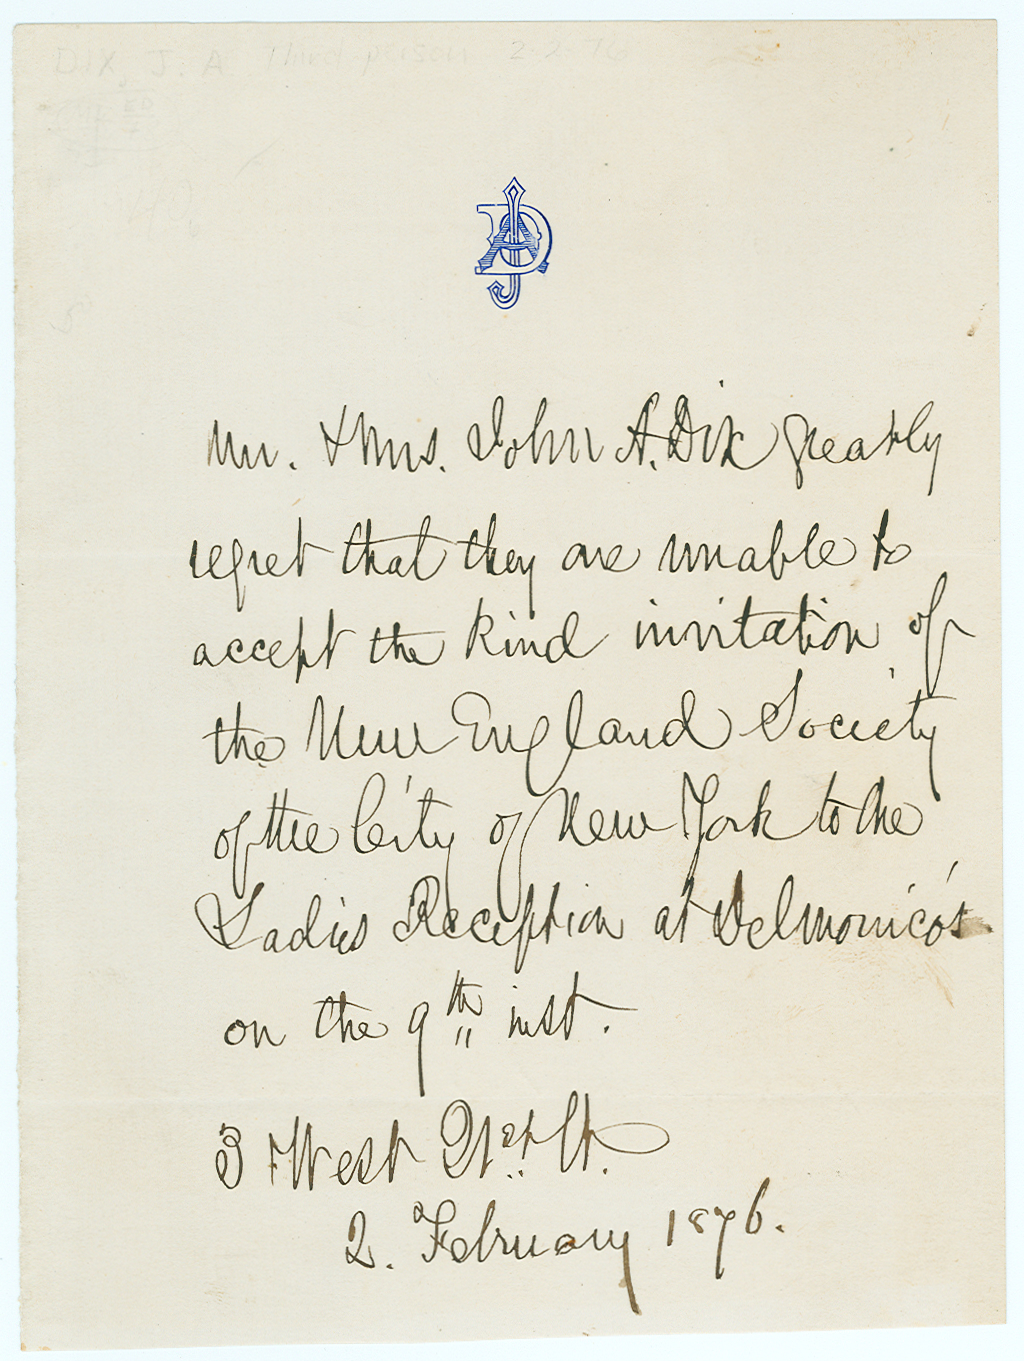 DIX, J. A. Third person 2-2-76
JAD
Mr. & Mrs. John A. Dix greatly
regret that they are unable to
accept the kind invitation of
the New England Society
of the City of New York to the
Ladies Reception at Delmonico's
on the 9th inst.
3 West 21st. St.
2. February 1876.